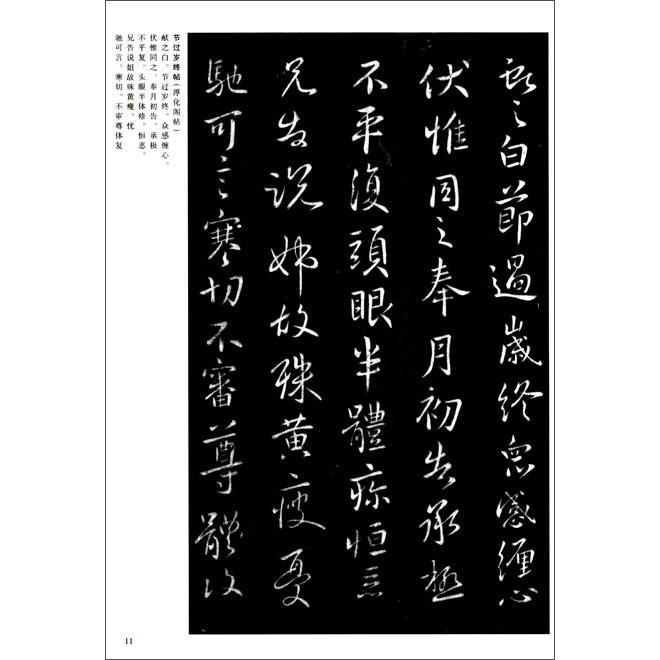 献之白節過歲終眾感纏心
伏惟同之奉月初告承極
不平復頭眼半體疹恒惡
兄告説姊故殊黄瘦憂
馳可言寒切不審尊體復
节过岁终帖(淳化阁帖)
献之白。节过岁终。众感缠心。
伏惟同之。奉月初告。承极
不平复。头眼半体疹。恒恶。
兄告说姐故殊黄瘦。忧
驰可言。寒切。不审尊体复
11